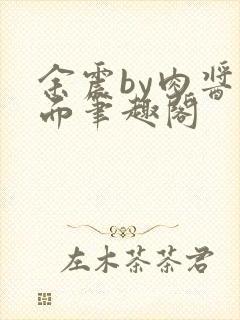 余震by肉酱
而筆趣阁
左木茶茶君